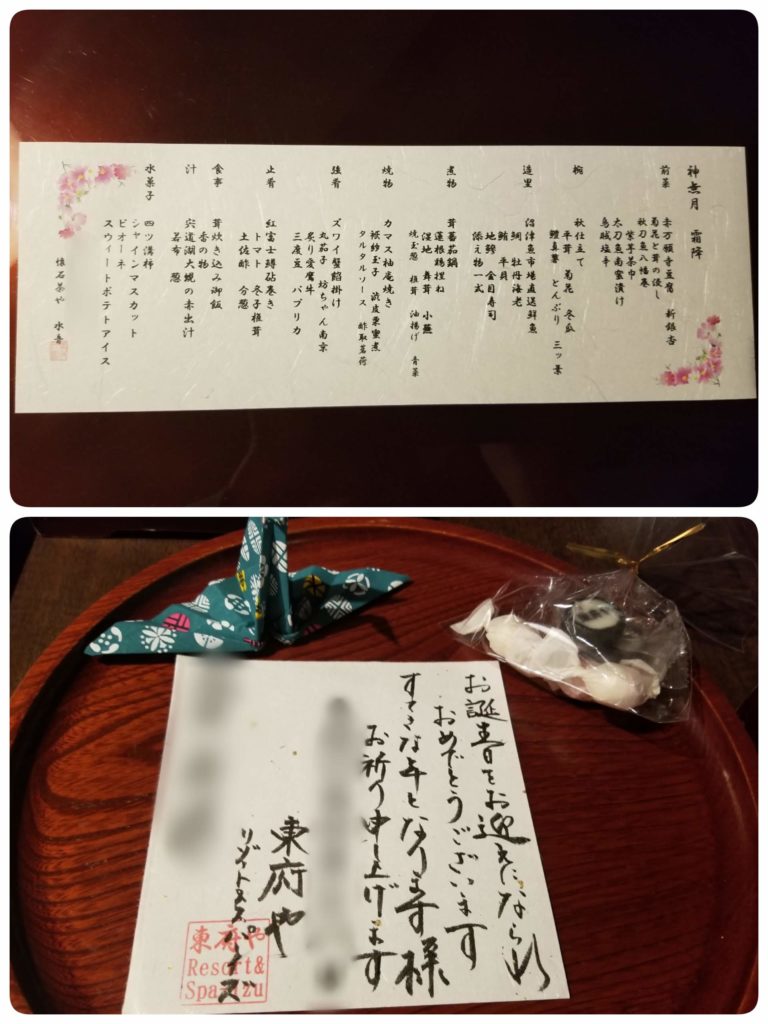 神無月　霜降
前菜　赤万願寺豆腐　新銀杏
菊花と茸の浸し
秋刀魚八幡巻
紫芋茶巾
太刀魚南蛮漬け
烏賊塩辛
椀　秋仕立て
平茸　菊花　冬瓜
鱧真薯　とんぶり　三ッ葉
造里　沼津魚市場直送鮮魚
鯛　牡丹海老
鮪　平貝
地鯵　金目寿司
添え物一式
煮物　茸蕃茄鍋
蓮根鶏捏ね
湿地　舞茸　小蕪
焼玉葱　椎茸　油揚げ　青菜
焼物　カマス柚庵焼き
袱紗玉子　渋皮栗蜜煮
タルタルソース　酢取茗荷
強肴　ズワイ蟹餡掛け
丸茄子　坊ちゃん南京
炙り愛鷹牛
三度豆　パプリカ
止肴　紅富士鱒砧巻き
トマト　冬子椎茸
土佐酢　分葱
食事　茸炊き込み御飯
香の物
汁　宍道湖大蜆の赤出汁
若布　葱
水菓子　四ツ溝柿
シャインマスカット
ピオーネ
スウィートポテトアイス
懐石茶や　水音
お誕春をお迎えになられ
おめでとうございます
すてきな年となります様
お祈り申し上げます
東府や
リゾート&スパイズ
東府や
Resort&
Spa-Izu